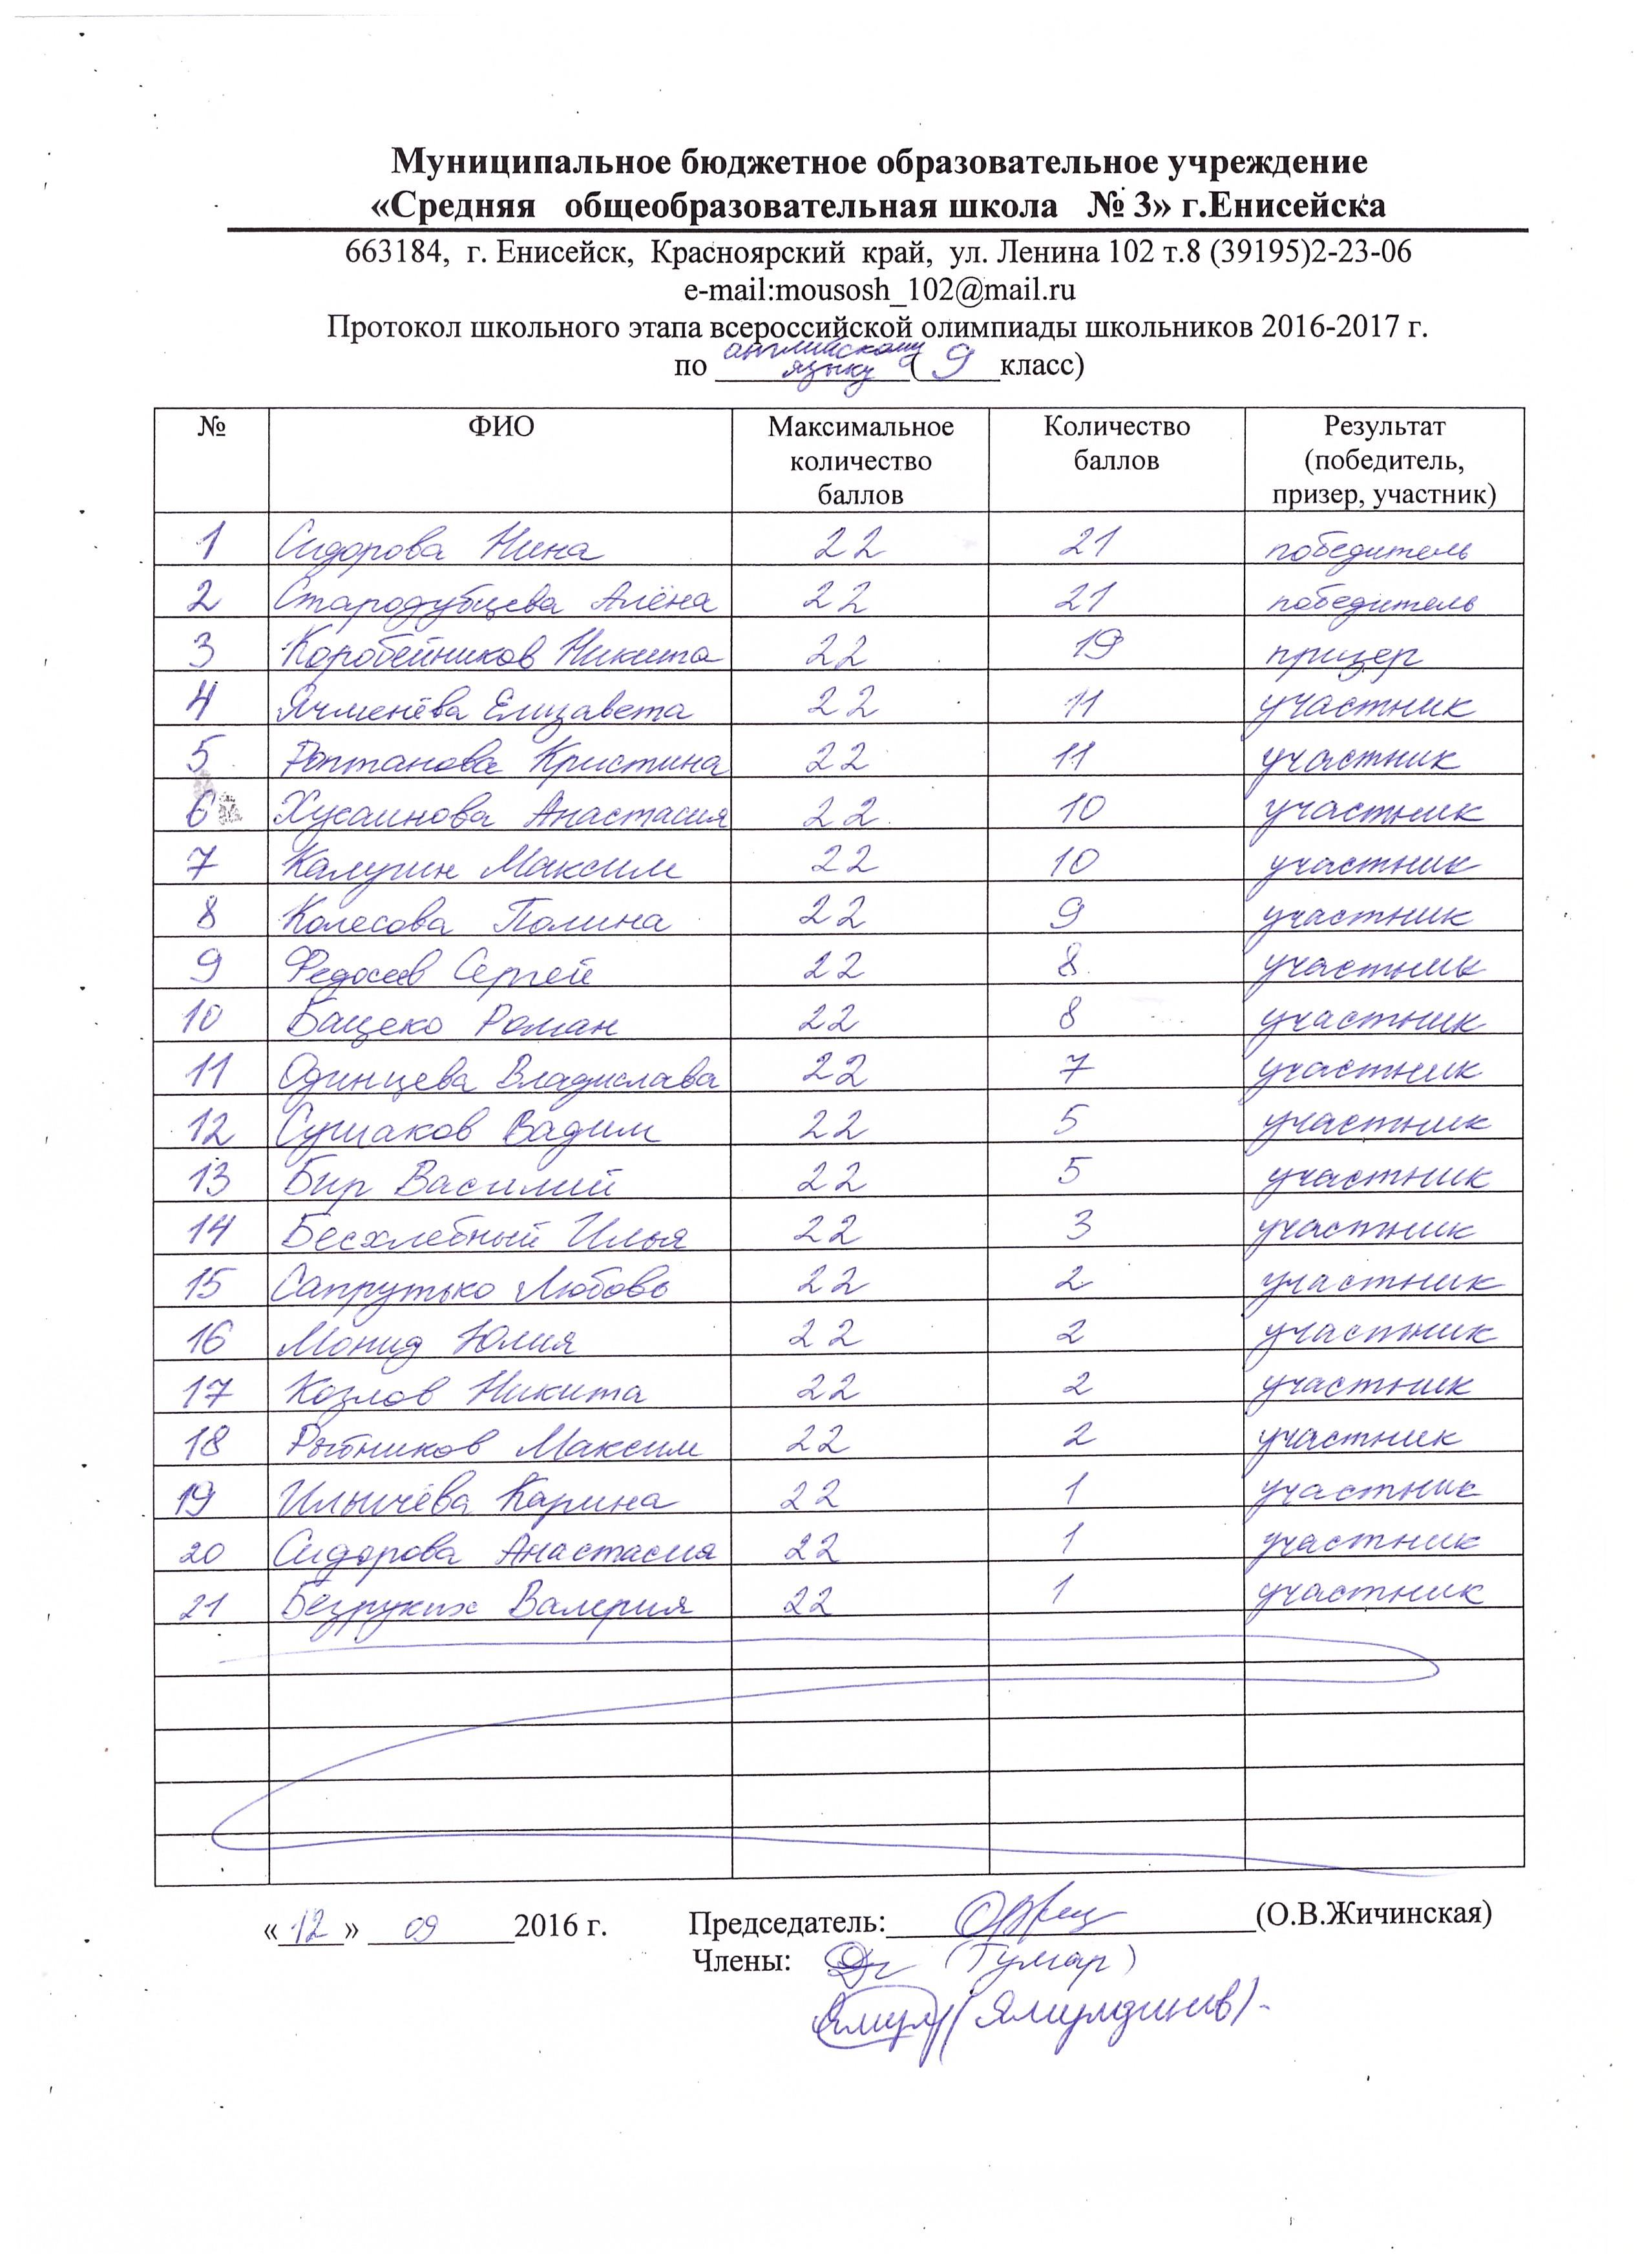 Муниципальное бюджетное образовательное учреждение
«Средняя общеобразовательная школа № 3» г.Енисейска
663184, г. Енисейск, Красноярский край, ул. Ленина 102 т.8 (39195)2-23-06
e-mail:mousosh_102@mail.ru
Протокол школьного этапа всероссийской олимпиады школьников 2016-2017 г.
по английскому языку (9 класс)
№ ФИО Максимальное количество баллов Количество баллов Результат (победитель, призер, участник)
1 Сидорова Нина 22 21 победитель
2 Стародубцева Алёна 22 21 победитель
3 Коробейников Никита 22 19 призер
4 Ячменёва Елизавета 22 11 участник
5 Кристина 22 11 участник
6 Хусаинова Анастасия 22 10 участник
7 Калугин Максим 22 10 участник
8 Колесова Полина 22 9 участник
9 Федосеев Сергей 22 8 участник
10 Бацеко Роман 22 8 участник
11 Одинцева Владислава 22 7 участник
12 Сушаков Вадим 22 5 участник
13 Бир Василий 22 5 участник
14 Бесхлебный Илья 22 3 участник
15 Сапрутько Любовь 22 2 участник
16 Монид Юлия 22 2 участник
17 Козлов Никита 22 2 участник
18 Рыбников Максим 22 2 участник
19 Ильичёва Карина 22 1 участник
20 Сидорова Анастасия 22 1 участник
21 Безруких Валерия 22 1 участник
«12» 09 2016 г. Председатель: (О.В.Жичинская)
Члены: (Гумар)
(Ямулдинов)